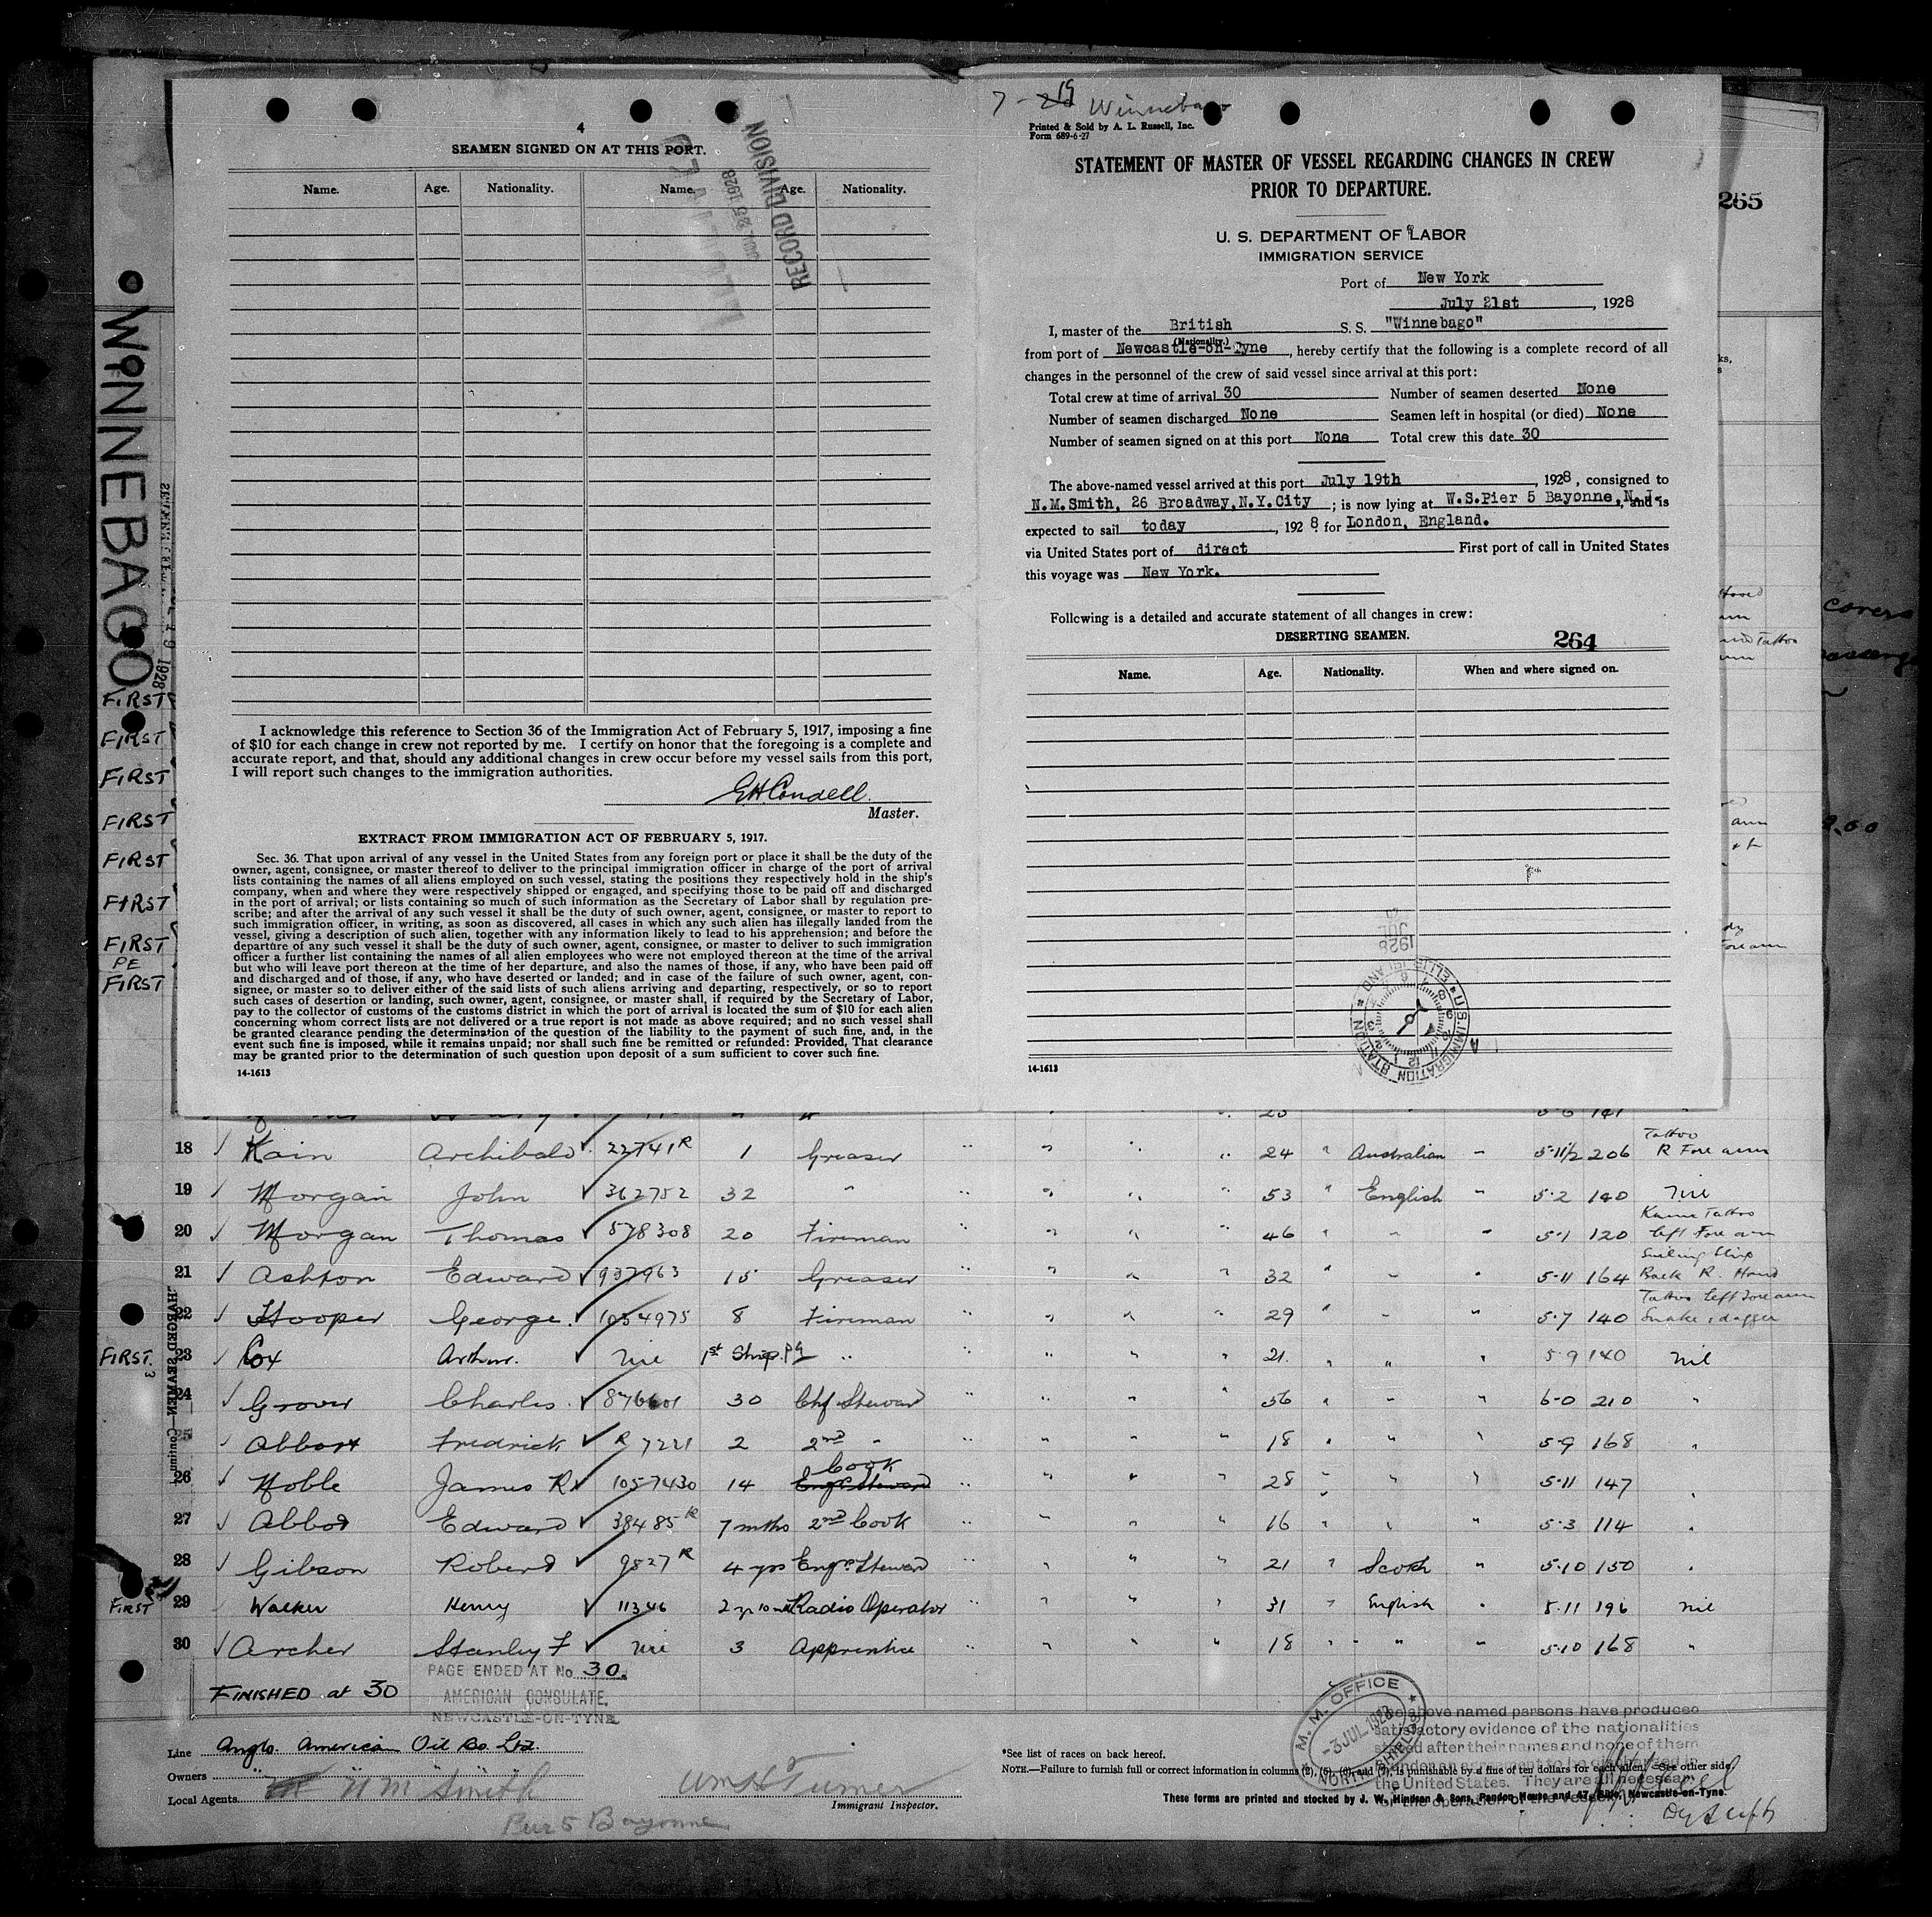 7-19 Winnebago
4
SEAMEN SIGNED ON AT THIS PORT.
Name. Age. Nationality. Name. Age. Nationality.
RECORD DIVISION
JUL 25 1928
I acknowledge this reference to Section 36 of the Immigration Act of February 5, 1917, imposing a fine
of $10 for each change in crew not reported by me. I certify on honor that the foregoing is a complete and
accurate report, and that, should any additional changes in crew occur before my vessel sails from this port,
I will report such changes to the immigration authorities.
G H Condell.
Master.
EXTRACT FROM IMMIGRATION ACT OF FEBRUARY 5, 1917.
Sec. 36. That upon arrival of any vessel in the United States from any foreign port or place it shall be the duty of the
owner, agent, consignee, or master thereof to deliver to the principal immigration officer in charge of the port of arrival
lists containing the names of all aliens employed on such vessel, stating the positions they respectively hold in the ship's
company, when and where they were respectively shipped or engaged, and specifying those to be paid off and discharged
in the port of arrival; or lists containing so much of such information as the Secretary of Labor shall by regulation pre-
scribe; and after the arrival of any such vessel it shall be the duty of such owner, agent, consignee, or master to report to
such immigration officer, in writing, as soon as discovered, all cases in which any such alien has illegally landed from the
vessel, giving a description of such alien, together with any information likely to lead to his apprehension; and before the
departure of any such vessel it shall be the duty of such owner, agent, consignee, or master to deliver to such immigration
officer a further list containing the names of all alien employees who were not employed thereon at the time of the arrival
but who will leave port thereon at the time of her departure, and also the names of those, if any, who have been paid off
and discharged and of those, if any, who have deserted or landed; and in case of the failure of such owner, agent, con-
signee, or master so to deliver either of the said lists of such aliens arriving and departing, respectively, or so to report
such cases of desertion or landing, such owner, agent, consignee, or master shall, if required by the Secretary of Labor,
pay to the collector of customs of the customs district in which the port of arrival is located the sum of $10 for each alien
concerning whom correct lists are not delivered or a true report is not made as above required; and no such vessel shall
be granted clearance pending the determination of the question of the liability to the payment of such fine, and, in the
event such fine is imposed, while it remains unpaid; nor shall such fine be remitted or refunded: Provided, That clearance
may be granted prior to the determination of such question upon deposit of a sum sufficient to cover such fine.
14-1613
Printed & Sold by A. L. Russell, Inc.
Form 689-6-27
STATEMENT OF MASTER OF VESSEL REGARDING CHANGES IN CREW
PRIOR TO DEPARTURE.
U. S. DEPARTMENT OF LABOR
IMMIGRATION SERVICE
Port of New York
July 21st, 1928
I, master of the British S. S. "Winnebago"
(Nationality.)
from port of Newcastle-on-Tyne, hereby certify that the following is a complete record of all
changes in the personnel of the crew of said vessel since arrival at this port:
Total crew at time of arrival 30 Number of seamen deserted None
Number of seamen discharged None Seamen left in hospital (or died) None
Number of seamen signed on at this port None Total crew this date 30
The above-named vessel arrived at this port July 19th, 1928, consigned to
N.M.Smith, 26 Broadway,N.Y.City; is now lying at W.S.Pier 5 Bayonne,N.J., and is
expected to sail today, 1928 for London, England.
via United States port of direct First port of call in United States
this voyage was New York.
Following is a detailed and accurate statement of all changes in crew:
DESERTING SEAMEN. 264
Name. Age. Nationality. When and where signed on.
U.S. IMMIGRATION STATION ELLIS ISLAND
JUL
1928
14-1613
265
WINNEBAGO
19 1928
FIRST
FIRST
FIRST
FIRST
FIRST
FIRST
FIRST
PE
FIRST
covers
18 Kain Archibald 22741 R 1 Greaser " " " " 24 " Australian " 5-11½ 206 Tattoo R Fore arm
19 Morgan John 362752 32 " " " " " 53 " English " 5-2 140 Nil
20 Morgan Thomas 578308 20 Fireman " " " " 46 " " " 5-1 120 Tattoo left Fore arm
21 Ashton Edward 937963 15 Greaser " " " " 32 " " " 5-11 164 Sailing Ship Back R. Hand
22 Hooper George 1054975 8 Fireman " " " " 29 " " " 5-7 140 Tattoo left Fore arm Snake & dagger
FIRST. 23 Cox Arthur. Nil 1st Ship. " " " " " 21. " " " 5 9 140 Nil
24 Grover Charles 876601 30 Chf Steward " " " " 56 " " " 6-0 210 "
25 Abbott Fredrick R 7221 2 2nd " " " " " 18 " " " 5-9 168 "
26 Noble James R 1057430 14 Cook Engrs Steward " " " " 28 " " " 5-11 147 "
27 Abbot Edward 38485 R 7 mths 2nd Cook " " " " 16 " " " 5-3 114 "
28 Gibson Robert 9827 R 4 yrs Engrs Steward " " " " 21 " Scotch " 5-10 150 "
FIRST 29 Walker Henry 11346 2 yr 10 m Radio Operator " " " " 31 " English " 5.11 196 Nil
30 Archer Stanley F Nil 3 Apprentice " " " " 18 " " " 5-10 168 "
PAGE ENDED AT No. 30.
FINISHED at 30
AMERICAN CONSULATE,
NEWCASTLE-ON-TYNE
Line Anglo American Oil Co. Ltd.
Owners " " "
Local Agents N M Smith
Pier 5 Bayonne
Wm H Turner
Immigrant Inspector.
*See list of races on back hereof.
NOTE.—Failure to furnish full or correct information in columns (2), (5), (6), and (7), is punishable by a fine of ten dollars for each alien. See other side.
These forms are printed and stocked by J. W. Hindson & Sons, Pandon House and 47, Side, Newcastle-on-Tyne.
M. M. OFFICE
-3 JUL 1928
NORTH SHIELDS
The above named persons have produced
satisfactory evidence of the nationalities
stated after their names and none of them
the United States. They are all necessary
for the operation of the vessel.
Dy Supt